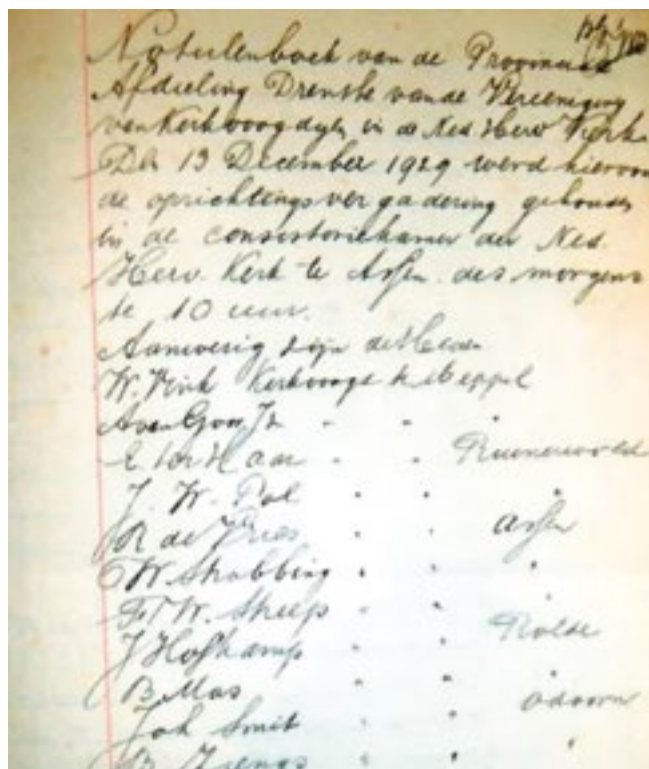 Notulenboek van de Provinciale
Afdieling Drenthe van de Vereeniging
van Kerkvoogdijen in de Ned. Herv. Kerk
Den 13 December 1929 werd hiervan
de oprichtingsvergadering gehouden
in de consistoriekamer der Ned.
Herv. Kerk te Assen des morgens
te 10 uur.
Aanwezig zijn de Heeren
W. Vink Kerkvoogd te Meppel
A van Goor Jz " " "
E ter Haar " " Ruinerwold
J. W. Pol " " "
R de Vries " " Assen
W. Strabbing " " "
W. Sheep " "
J Hofkamp " " Rolde
B Mos " " "
Joh Smit " " Odoorn
B " " "